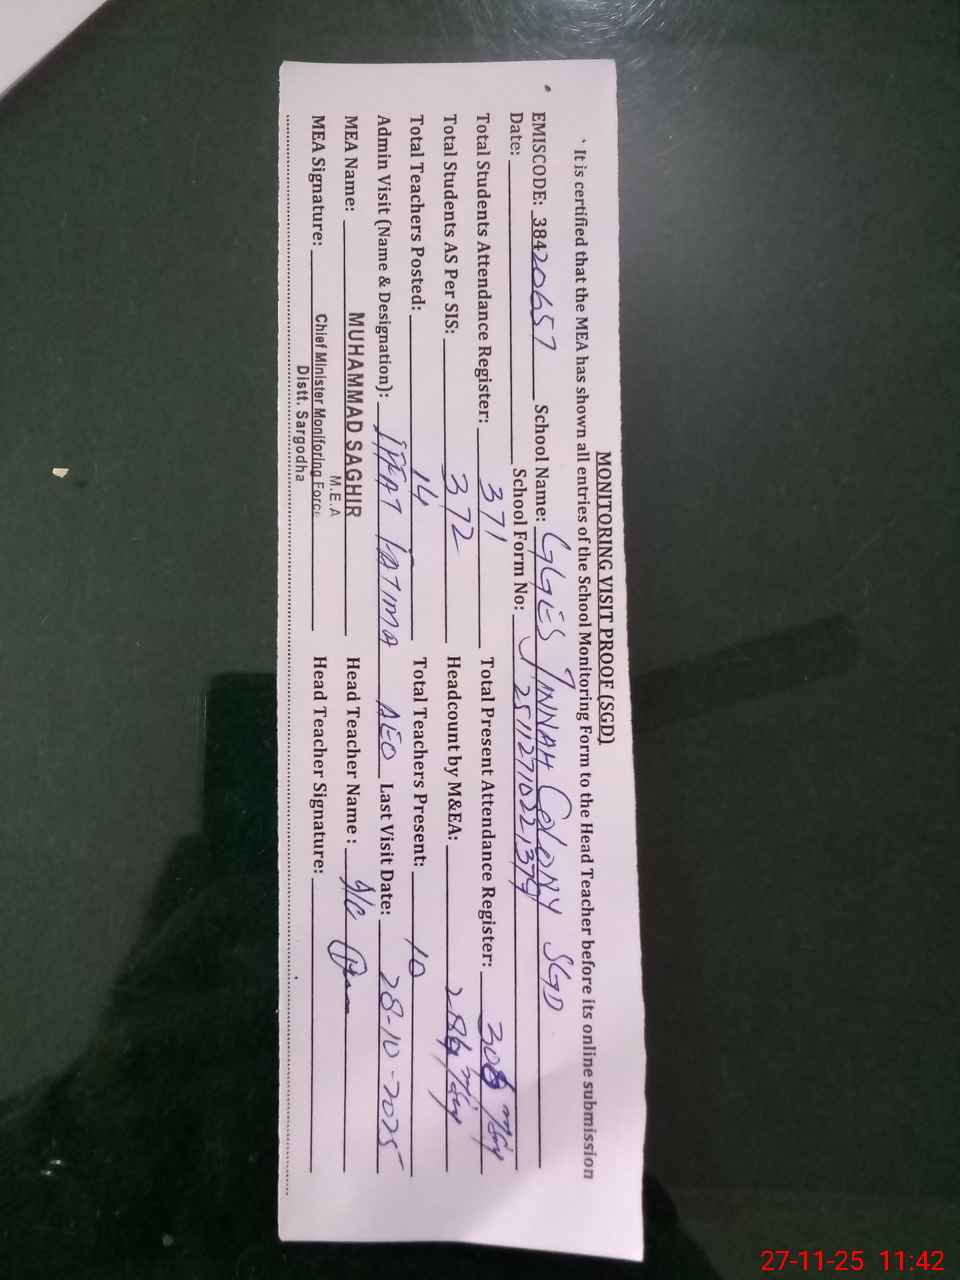 MONITORING VISIT PROOF (SGD)
It is certified that the MEA has shown all entries of the School Monitoring Form to the Head Teacher before its online submission
EMISCODE: 38420657 School Name: GGES JINNAH COLONY SGD
Date: School Form No: 2511271022,379
Total Students Attendance Register: 371 Total Present Attendance Register:
Total Students AS Per SIS: 372 Headcount by M&EA:
Total Teachers Posted: 14 Total Teachers Present: 10
Admin Visit (Name & Designation): IFFAT FATIMA AEO Last Visit Date: 28-10-2025
MEA Name: MUHAMMAD SAGHIR Head Teacher Name : I/C
M.E.A
MEA Signature: Chief Minister Monitoring Force Head Teacher Signature:
Distt. Sargodha
27-11-25 11:42